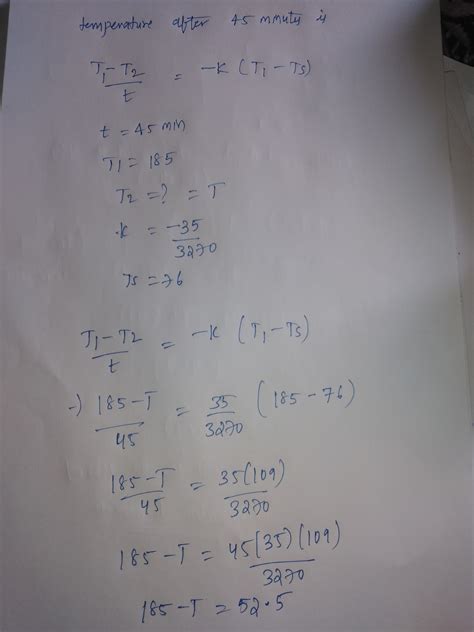 temperature after 45 minutes is
T1 - T2 / t = -K (T1 - Ts)
t = 45 min
T1 = 185
T2 = ? = T
K = -35 / 3270
Ts = 76
T1 - T2 / t = -K (T1 - Ts)
→) 185 - T / 45 = 35 / 3270 (185 - 76)
185 - T / 45 = 35(109) / 3270
185 - T = 45(35)(109) / 3270
185 - T = 52.5